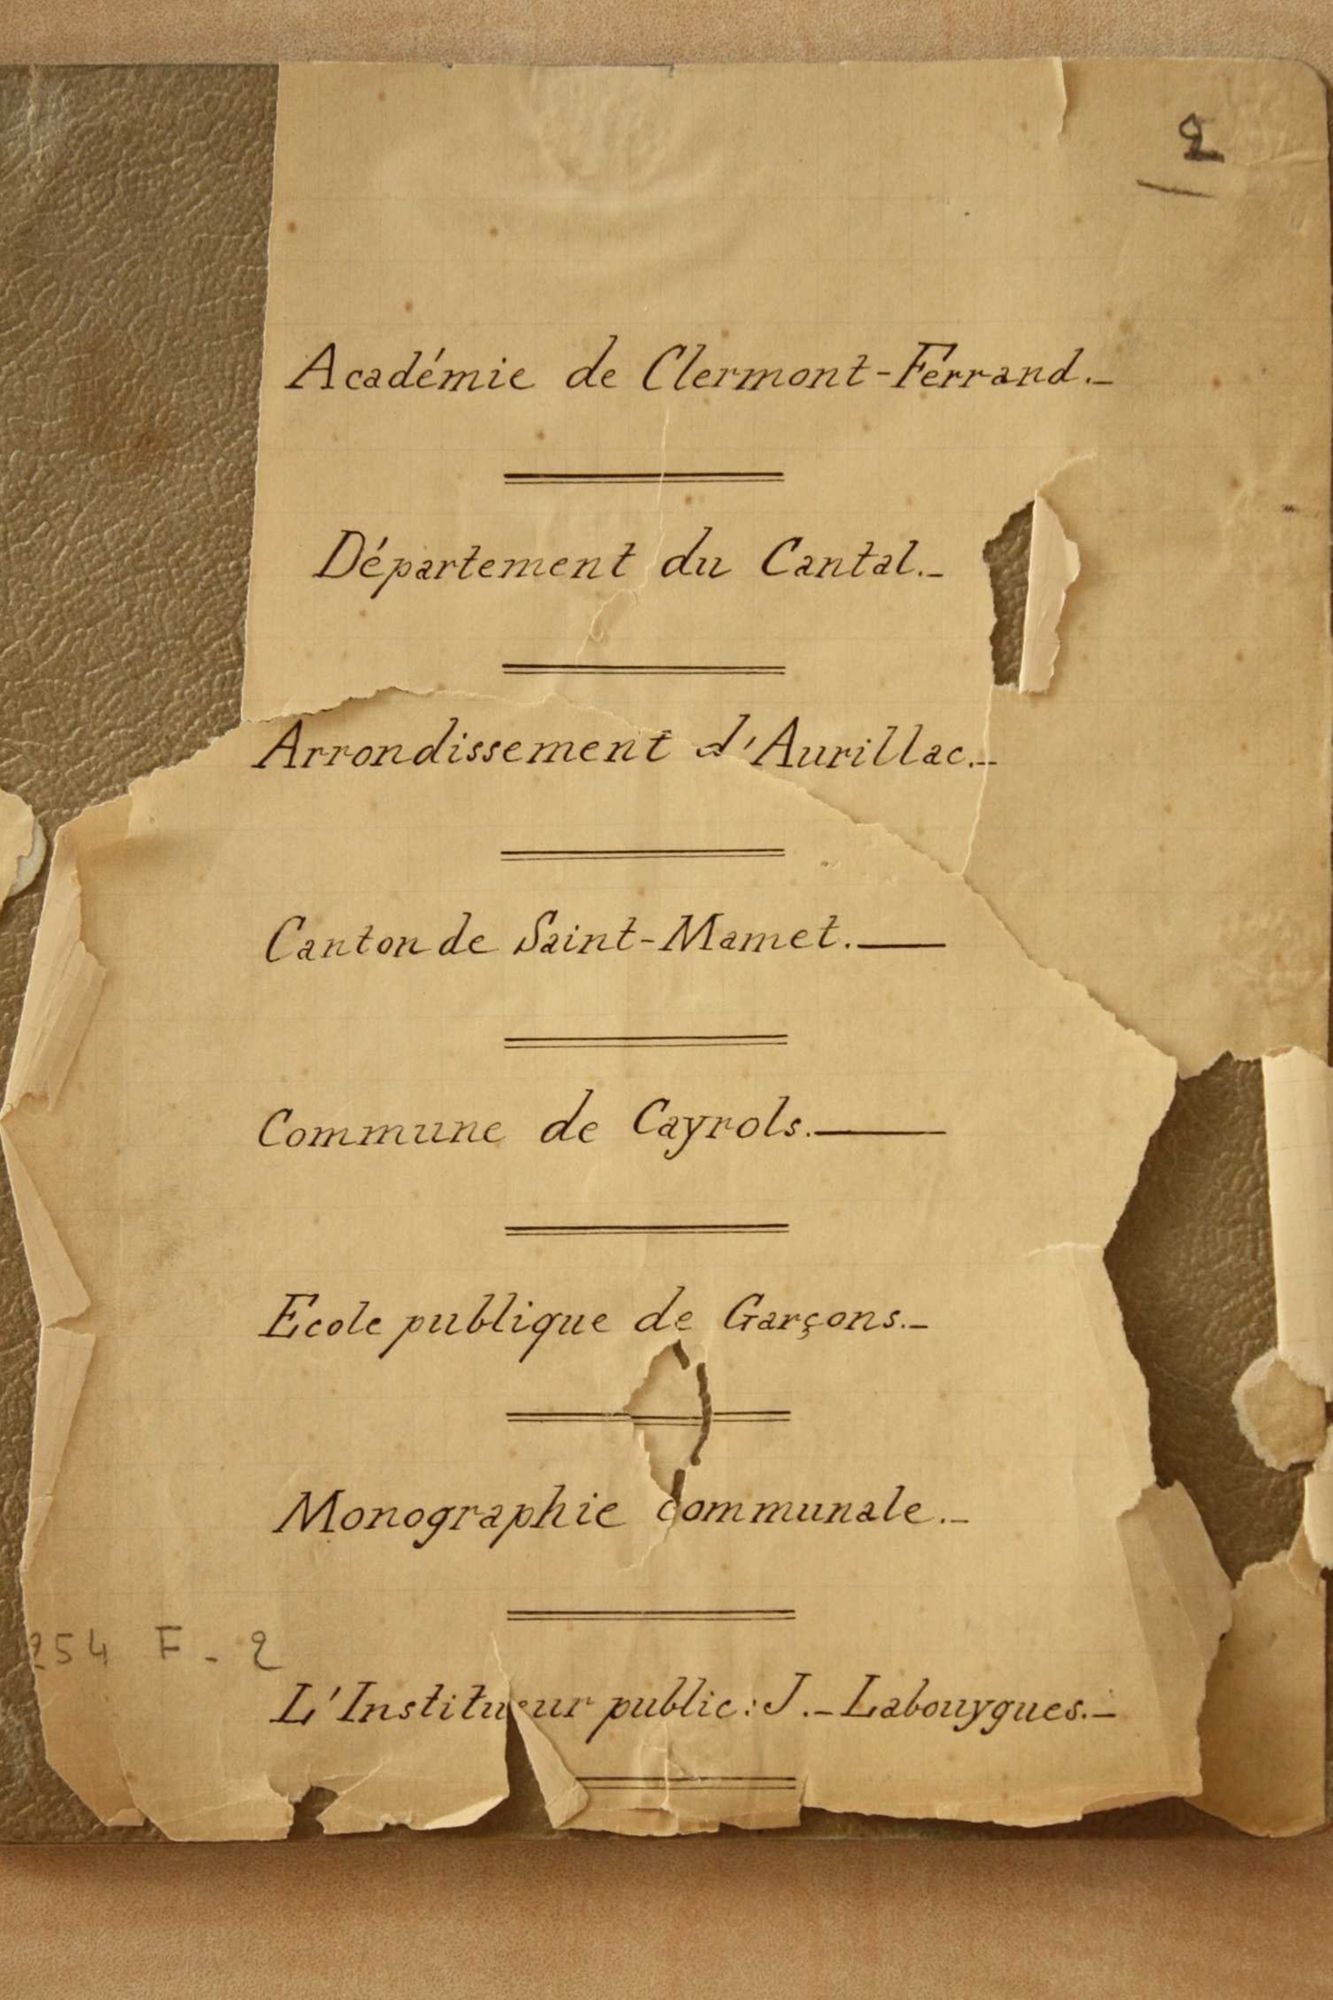 2
Académie de Clermont-Ferrand._
Département du Cantal._
Arrondissement d'Aurillac._
Canton de Saint-Mamet.—
Commune de Cayrols.—
Ecole publique de Garçons._
Monographie communale._
254 F - 2
L'Instituteur public: J._ Labouygues._